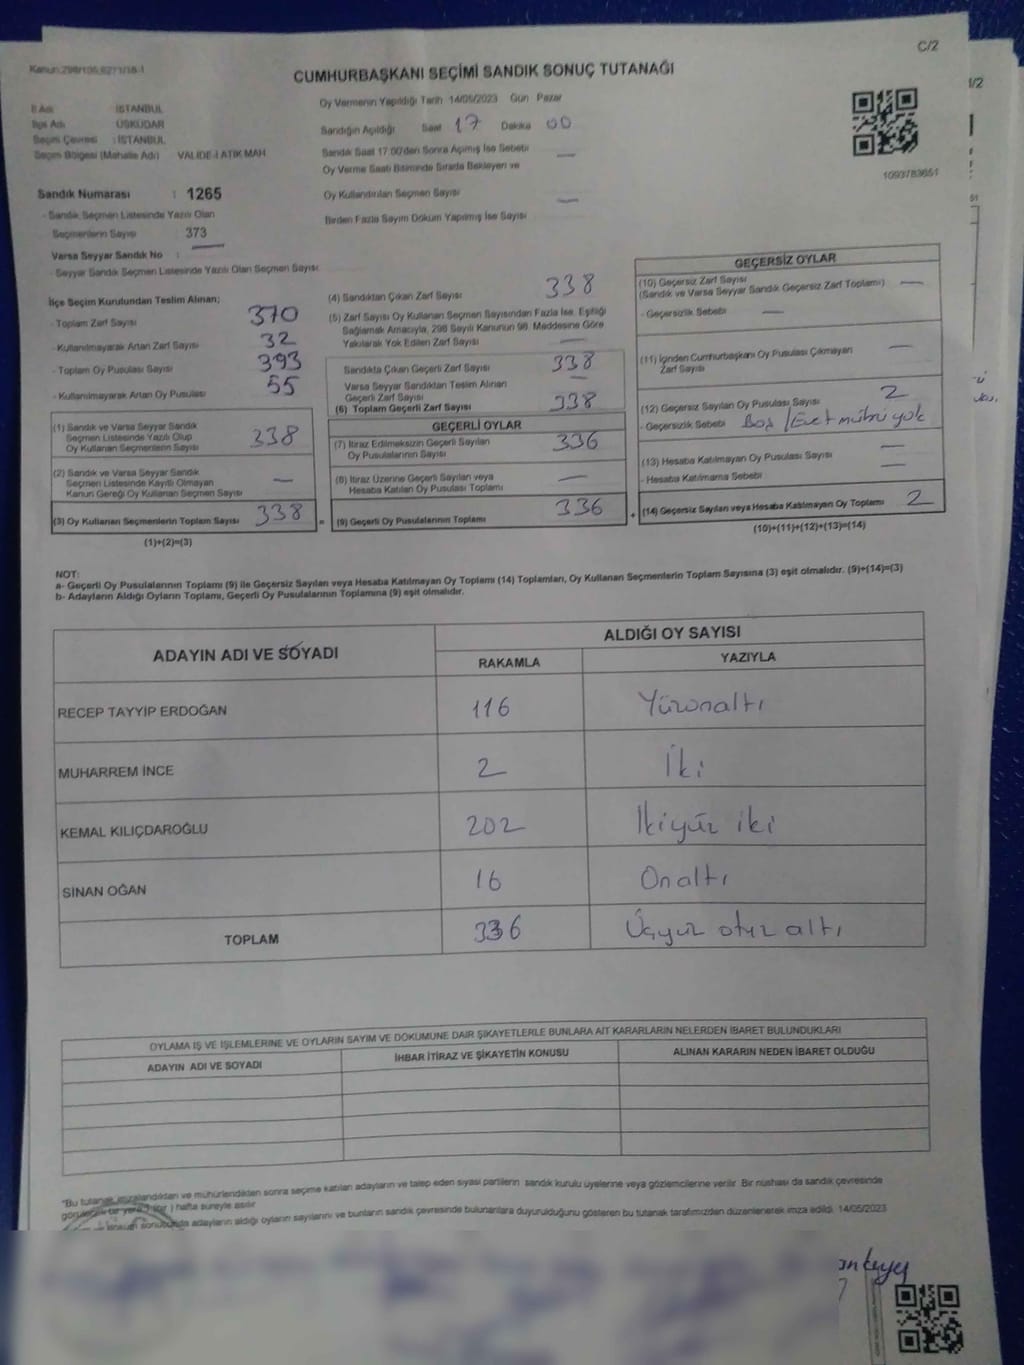 C/2
Kanun:298/105,6271/18-1
CUMHURBAŞKANI SEÇİMİ SANDIK SONUÇ TUTANAĞI
İl Adı : İSTANBUL
İlçe Adı : ÜSKÜDAR
Seçim Çevresi : İSTANBUL
Seçim Bölgesi (Mahalle Adı) VALİDE-İ ATİK MAH.
Sandık Numarası : 1265
- Sandık Seçmen Listesinde Yazılı Olan
Seçmenlerin Sayısı : 373
Varsa Seyyar Sandık No :
- Seyyar Sandık Seçmen Listesinde Yazılı Olan Seçmen Sayısı:
Oy Vermenin Yapıldığı Tarih 14/05/2023 Gün Pazar
Sandığın Açıldığı Saat 17 Dakika 00
Sandık Saat 17:00'den Sonra Açılmış İse Sebebi —
Oy Verme Saati Bitiminde Sırada Bekleyen ve
Oy Kullandırılan Seçmen Sayısı —
Birden Fazla Sayım Döküm Yapılmış İse Sayısı
1093783651
1/2
51
İlçe Seçim Kurulundan Teslim Alınan;
- Toplam Zarf Sayısı 370
- Kullanılmayarak Artan Zarf Sayısı 32
- Toplam Oy Pusulası Sayısı 393
- Kullanılmayarak Artan Oy Pusulası 55
(1) Sandık ve Varsa Seyyar Sandık
Seçmen Listesinde Yazılı Olup
Oy Kullanan Seçmenlerin Sayısı 338
(2) Sandık ve Varsa Seyyar Sandık
Seçmen Listesinde Kayıtlı Olmayan
Kanun Gereği Oy Kullanan Seçmen Sayısı —
(3) Oy Kullanan Seçmenlerin Toplam Sayısı 338 =
(1)+(2)=(3)
(4) Sandıktan Çıkan Zarf Sayısı 338
(5) Zarf Sayısı Oy Kullanan Seçmen Sayısından Fazla İse, Eşitliği
Sağlamak Amacıyla, 298 Sayılı Kanunun 98. Maddesine Göre
Yakılarak Yok Edilen Zarf Sayısı —
Sandıkta Çıkan Geçerli Zarf Sayısı 338
Varsa Seyyar Sandıktan Teslim Alınan
Geçerli Zarf Sayısı —
(6) Toplam Geçerli Zarf Sayısı 338
GEÇERLİ OYLAR
(7) İtiraz Edilmeksizin Geçerli Sayılan
Oy Pusulalarının Sayısı 336
(8) İtiraz Üzerine Geçerli Sayılan veya
Hesaba Katılan Oy Pusulası Toplamı —
(9) Geçerli Oy Pusulalarının Toplamı 336 +
GEÇERSİZ OYLAR
(10) Geçersiz Zarf Sayısı
(Sandık ve Varsa Seyyar Sandık Geçersiz Zarf Toplamı) —
- Geçersizlik Sebebi —
(11) İçinden Cumhurbaşkanı Oy Pusulası Çıkmayan
Zarf Sayısı —
(12) Geçersiz Sayılan Oy Pusulası Sayısı 2
- Geçersizlik Sebebi Boş / Evet mührü yok
(13) Hesaba Katılmayan Oy Pusulası Sayısı —
- Hesaba Katılmama Sebebi —
(14) Geçersiz Sayılan veya Hesaba Katılmayan Oy Toplamı 2
(10)+(11)+(12)+(13)=(14)
NOT:
a- Geçerli Oy Pusulalarının Toplamı (9) ile Geçersiz Sayılan veya Hesaba Katılmayan Oy Toplamı (14) Toplamları, Oy Kullanan Seçmenlerin Toplam Sayısına (3) eşit olmalıdır. (9)+(14)=(3)
b- Adayların Aldığı Oyların Toplamı, Geçerli Oy Pusulalarının Toplamına (9) eşit olmalıdır.
ADAYIN ADI VE SOYADI
ALDIĞI OY SAYISI
RAKAMLA YAZIYLA
RECEP TAYYİP ERDOĞAN 116 Yüzonaltı
MUHARREM İNCE 2 İki
KEMAL KILIÇDAROĞLU 202 İkiyüz iki
SİNAN OĞAN 16 Onaltı
TOPLAM 336 Üçyüz otuz altı
OYLAMA İŞ VE İŞLEMLERİNE VE OYLARIN SAYIM VE DÖKÜMÜNE DAİR ŞİKAYETLERLE BUNLARA AİT KARARLARIN NELERDEN İBARET BULUNDUKLARI
ADAYIN ADI VE SOYADI İHBAR İTİRAZ VE ŞİKAYETİN KONUSU ALINAN KARARIN NEDEN İBARET OLDUĞU
"Bu tutanak imzalandıktan ve mühürlendikten sonra seçime katılan adayların ve talep eden siyasi partilerin sandık kurulu üyelerine veya gözlemcilerine verilir. Bir nüshası da sandık çevresinde
görülebilir bir yere 1 (bir ) hafta süreyle asılır
sonucunda adayların aldığı oyların sayılarını ve bunların sandık çevresinde bulunanlara duyurulduğunu gösteren bu tutanak tarafımızdan düzenlenerek imza edildi. 14/05/2023